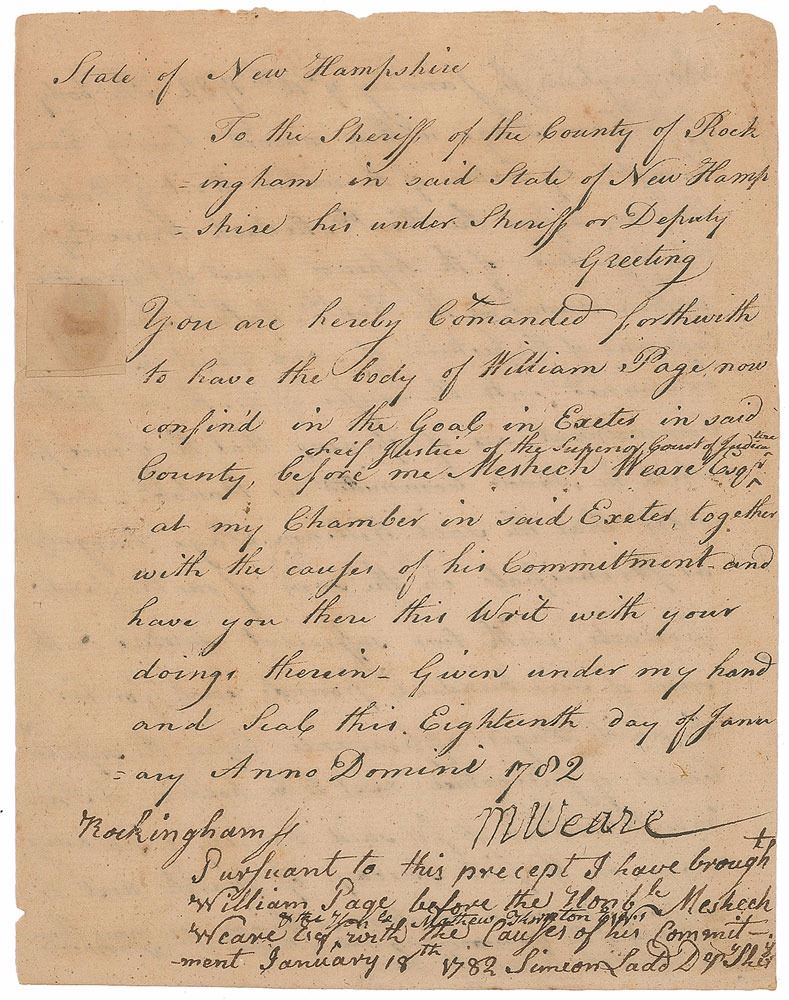 State of New Hampshire
To the Sheriff of the County of Rock
=ingham in said State of New Hamp
=shire his under Sheriff or Deputy
Greeting
You are hereby Com̄anded forthwith
to have the body of William Page now
confin'd in the Goal in Exeter in said
cheif Justice of the Superior Court of Judicature
County, before me Meshech Weare Esqr ^
at my Chamber in said Exeter, together
with the causes of his Commitment and
have you there this Writ with your
doings therein - Given under my hand
and Seal this Eighteenth day of Janu
=ary Anno Domini 1782
MWeare
Rockingham ss
Pursuant to this precept I have brought
William Page before the Honble Meshech
& the Honle Mathew Thornton Esqrs
Weare Esqr ^ with the Causes of his Commit-
-ment January 18th 1782 Simeon Ladd Depy Sher